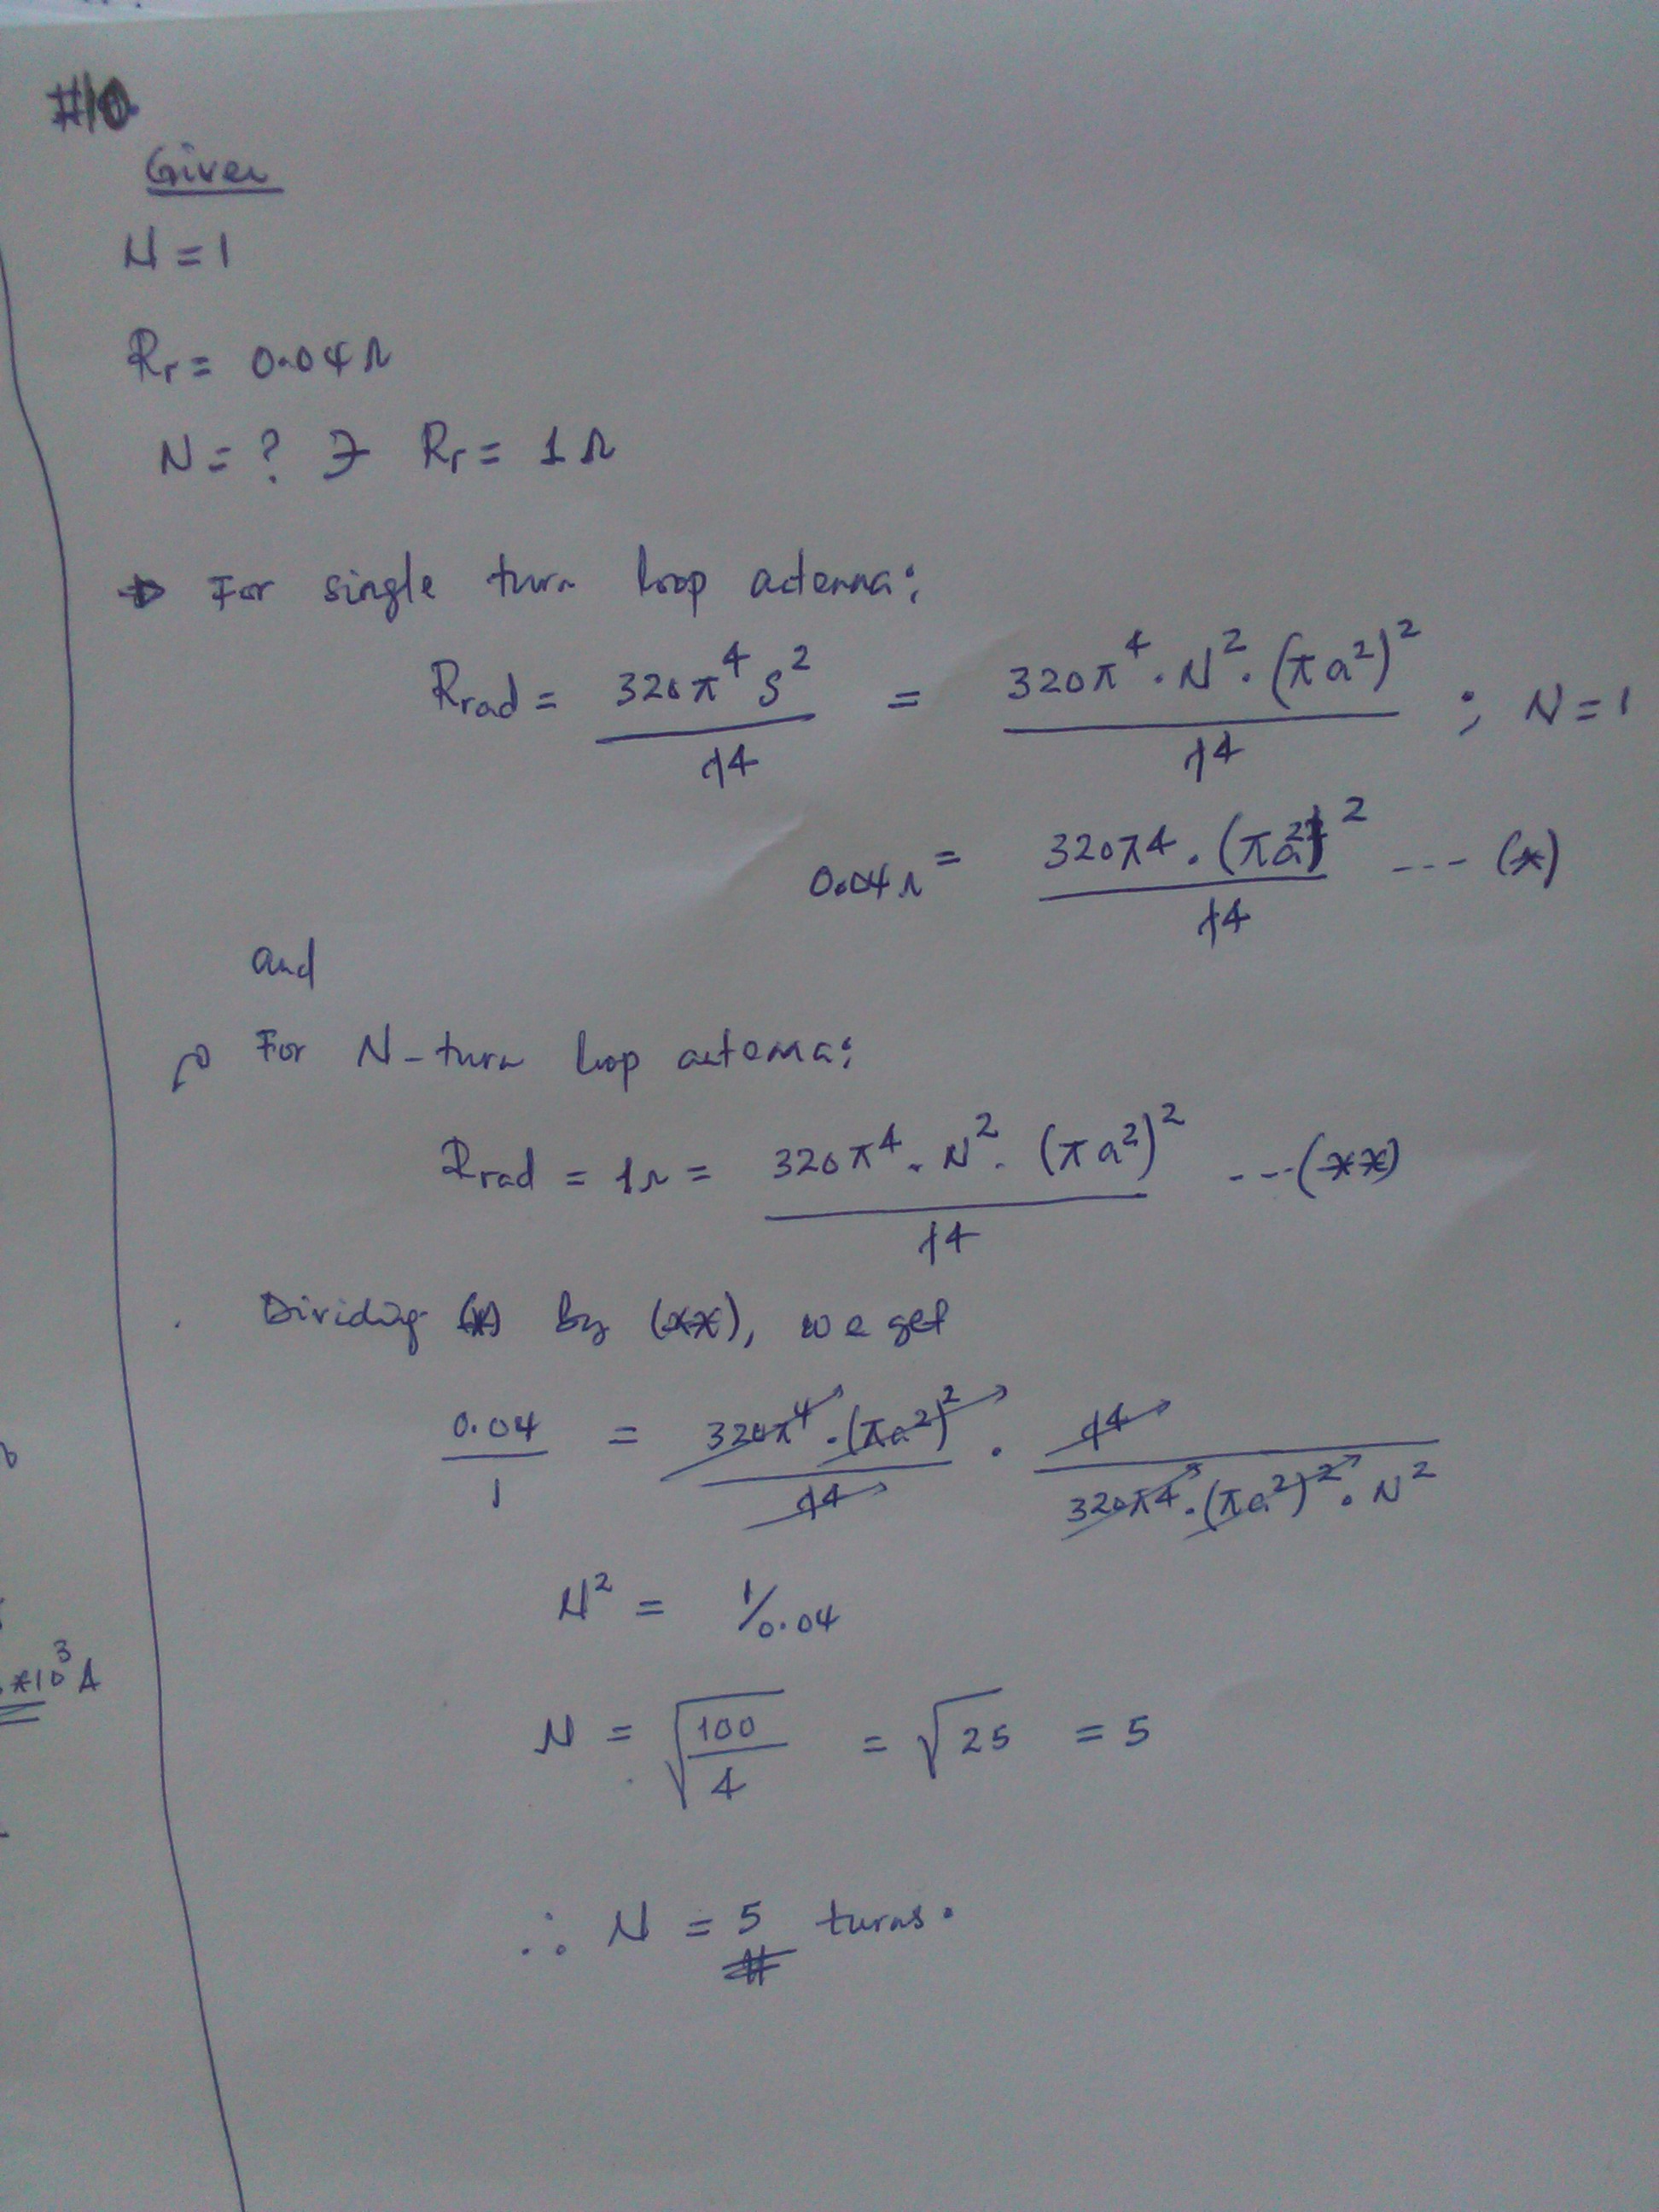 #10.
Given
N = 1
Rr = 0.04Ω
N = ? ∋ Rr = 1Ω
→ For single turn loop actenna;
Rrad = 320π⁴ S² / λ⁴ = 320π⁴ · N² · (πa²)² / λ⁴ ; N = 1
0.04Ω = 320π4 · (πa²)² / λ4 --- (*)
and
For N-turn loop actenna;
Rrad = 1Ω = 320π⁴ · N² · (πa²)² / λ4 ---(**)
Dividing (*) by (**), we get
0.04 / 1 = 320π⁴ · (πa²)² / λ4 · λ4 / 320π4 · (πa²)² · N²
N² = 1/0.04
*10³ A
N = √(100 / 4) = √25 = 5
∴ N = 5 turns.